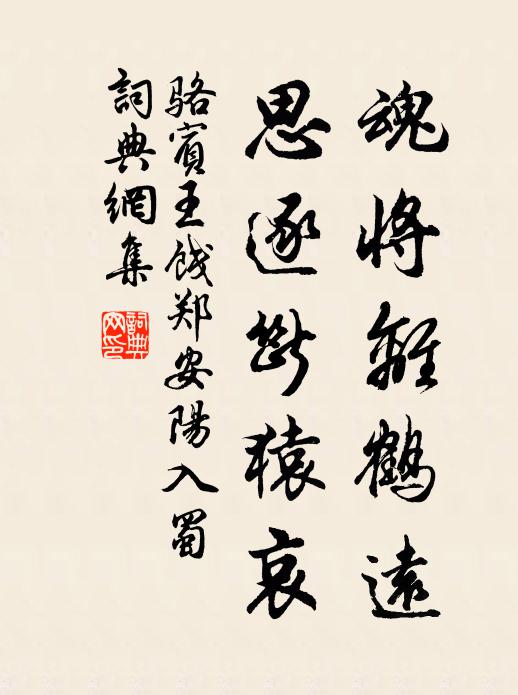 魂將離鶴遠
思逐斷猿哀
骆賓王餞郑安陽入蜀
詞典網集
詞典网印